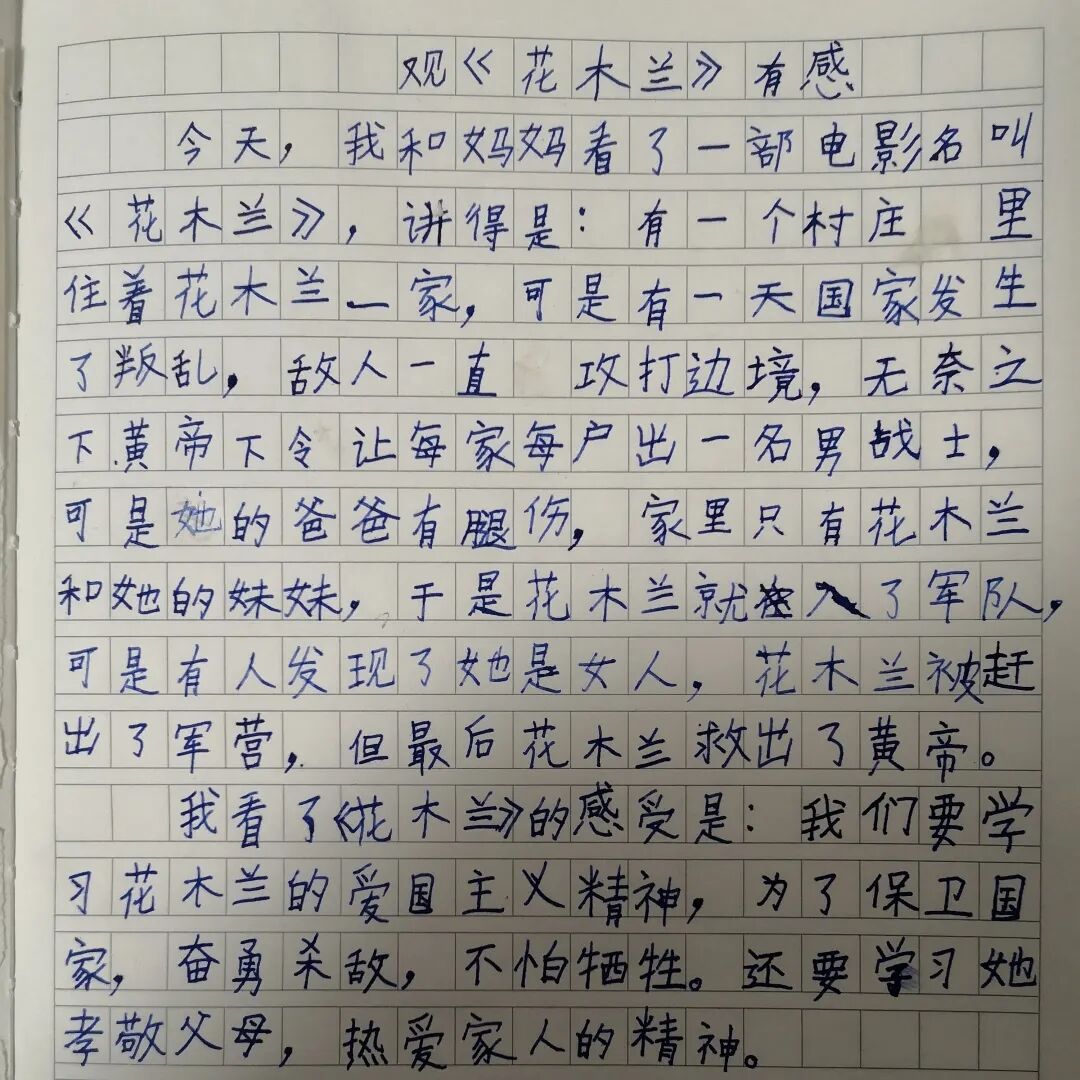 观《花木兰》有感
今天，我和妈妈看了一部电影名叫
《花木兰》，讲得是：有一个村庄里
住着花木兰一家，可是有一天国家发生
了叛乱，敌人一直攻打边境，无奈之
下黄帝下令让每家每户出一名男战士，
可是她的爸爸有腿伤，家里只有花木兰
和她的妹妹，于是花木兰就入了军队，
可是有人发现了她是女人，花木兰被赶
出了军营，但最后花木兰救出了黄帝。
我看了《花木兰》的感受是：我们要学
习花木兰的爱国主义精神，为了保卫国
家，奋勇杀敌，不怕牺牲。还要学习她
孝敬父母，热爱家人的精神。